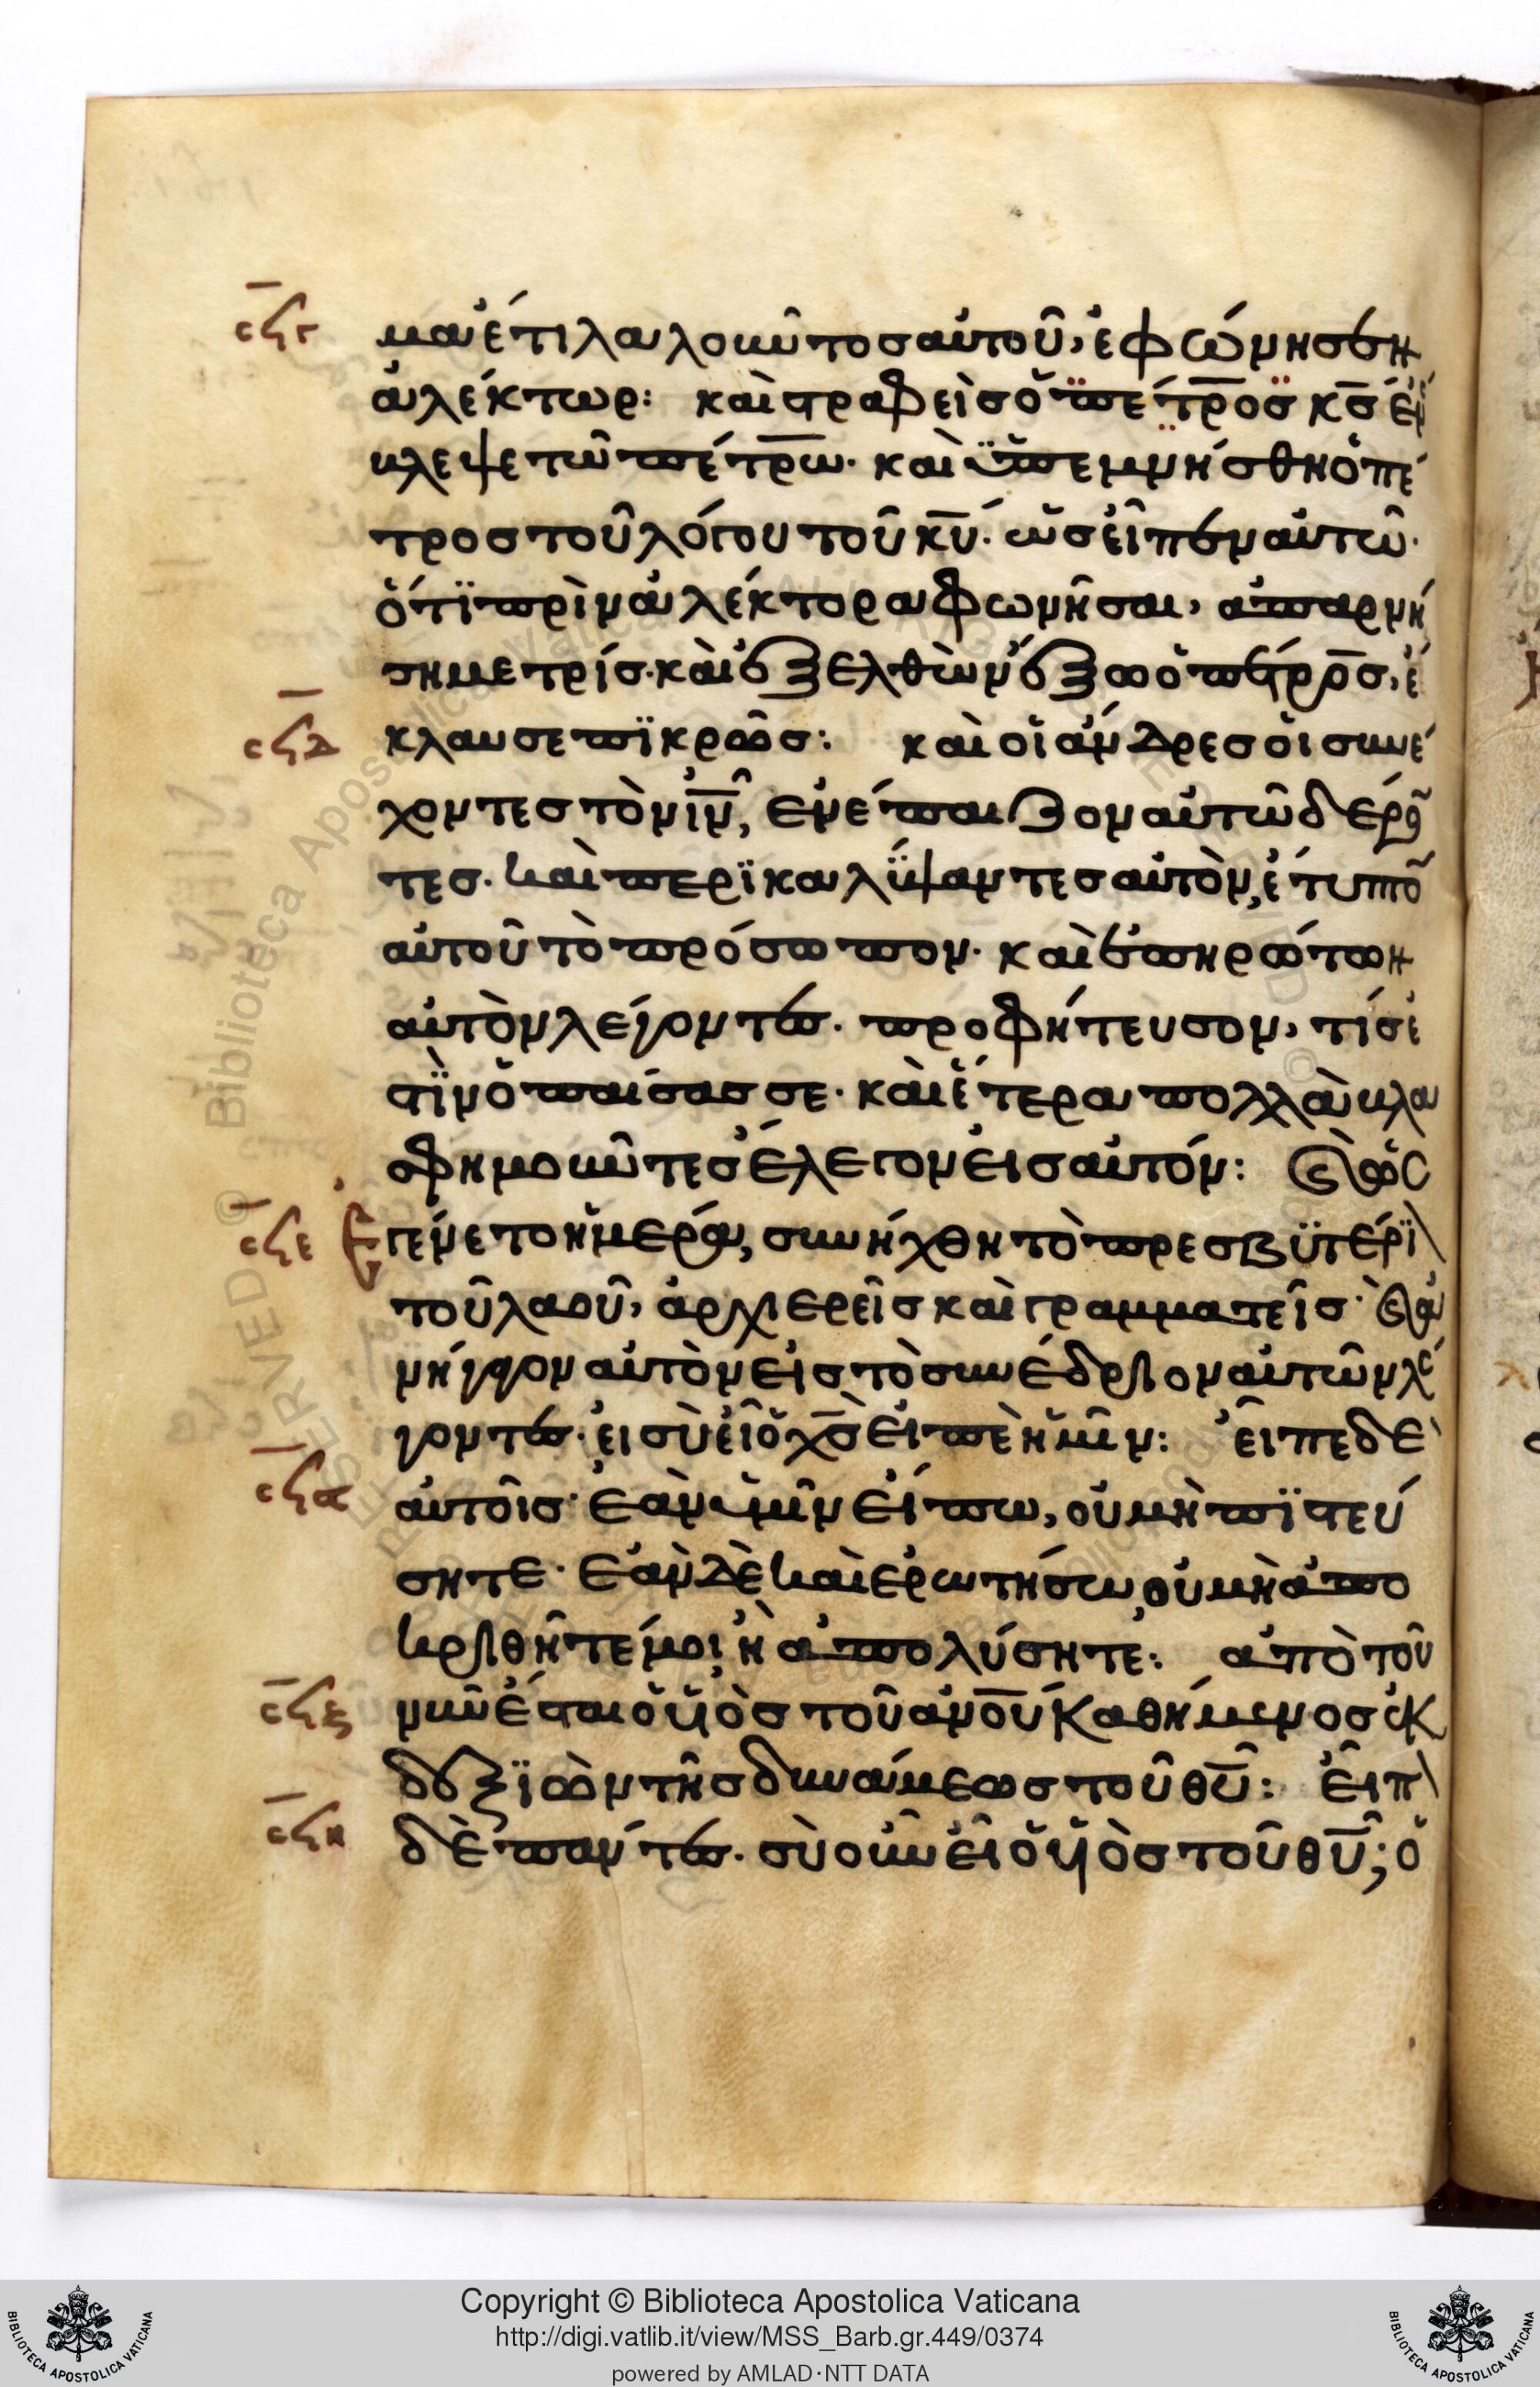 ςζγ
μα ἔτι λαλοῦντος αὐτοῦ, ἐφώνησεν
ἀλέκτωρ: καὶ στραφεὶς ὁ πέτρος κς ἐν
έβλεψε τῶ πέτρω. καὶ ὑπεμνήσθη ὁ πέ
τρος τοῦ λόγου τοῦ κυ. ὡς εἶπεν αὐτῶ.
ὅτι πρὶν ἀλέκτορα φωνῆσαι, ἀπαρνή
ση με τρίς. καὶ ἐξελθὼν ἔξω ὁ πέτρος, έ
ςζδ
κλαυσε πικρῶς: καὶ οἱ ἄνδρες οἱ συνέ
χοντες τὸν ιν, ἐνέπαιζον αὐτῶ δέρον
τες. καὶ περικαλύψαντες αὐτὸν, ἔτυπτον
αὐτοῦ τὸ πρόσωπον. καὶ ἐπηρώτων
αὐτὸν λέγοντες. προφήτευσον, τίς ἐ
στὶν ὁ παίσας σε. καὶ ἕτερα πολλὰ βλα
σφημοῦντες ἔλεγον εἰς αὐτόν: καὶ ὡς
ςζε
ἐγένετο ἡμέρα, συνήχθη τὸ πρεσβυτέρι
τοῦ λαοῦ, ἀρχιερεῖς καὶ γραμματεῖς. καὶ ἀ
νήγαγον αὐτὸν εἰς τὸ συνέδριον αὐτῶν λέ
γοντες. εἰ σὺ εἶ ὁ χς εἰπὲ ἡμῖν: εἶπε δὲ
ςζϛ
αὐτοῖς. ἐὰν ὑμῖν εἴπω, οὐ μὴ πιστεύ
σητε. ἐὰν δὲ καὶ ἐρωτήσω, οὐ μὴ ἀπο
κριθῆτέ μοι, ἢ ἀπολύσητε: ἀπὸ τοῦ
ςζζ
νῦν ἔσται ὁ υἱὸς τοῦ ανου καθήμενος ἐκ
δεξιῶν τῆς δυνάμεως τοῦ θυ: εἶπ
ςζη
δὲ πάντες. σὺ οὖν εἶ ὁ υἱὸς τοῦ θυ; ὁ
Copyright © Biblioteca Apostolica Vaticana
http://digi.vatlib.it/view/MSS_Barb.gr.449/0374
powered by AMLAD·NTT DATA
BIBLIOTECA APOSTOLICA VATICANA
BIBLIOTECA APOSTOLICA VATICANA